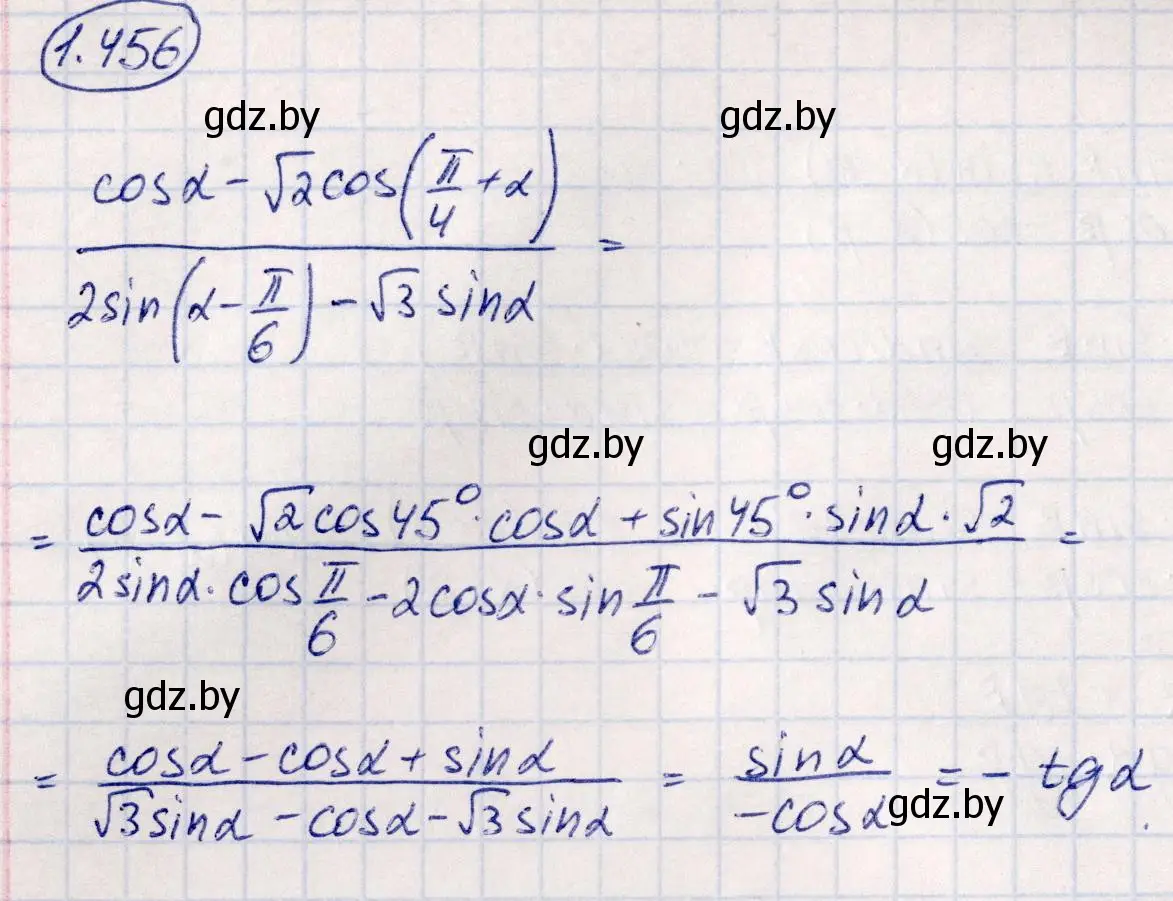 1.456
gdz.by gdz.by
cosα - √2 cos(π/4 + α)
2sin(α - π/6) - √3 sinα =
gdz.by gdz.by
= cosα - √2 cos45° · cosα + sin45° · sinα · √2 =
2sinα · cos π/6 - 2cosα · sin π/6 - √3 sinα
gdz.by
= cosα - cosα + sinα = sinα = - tgα
√3 sinα - cosα - √3 sinα -cosα
gdz.by